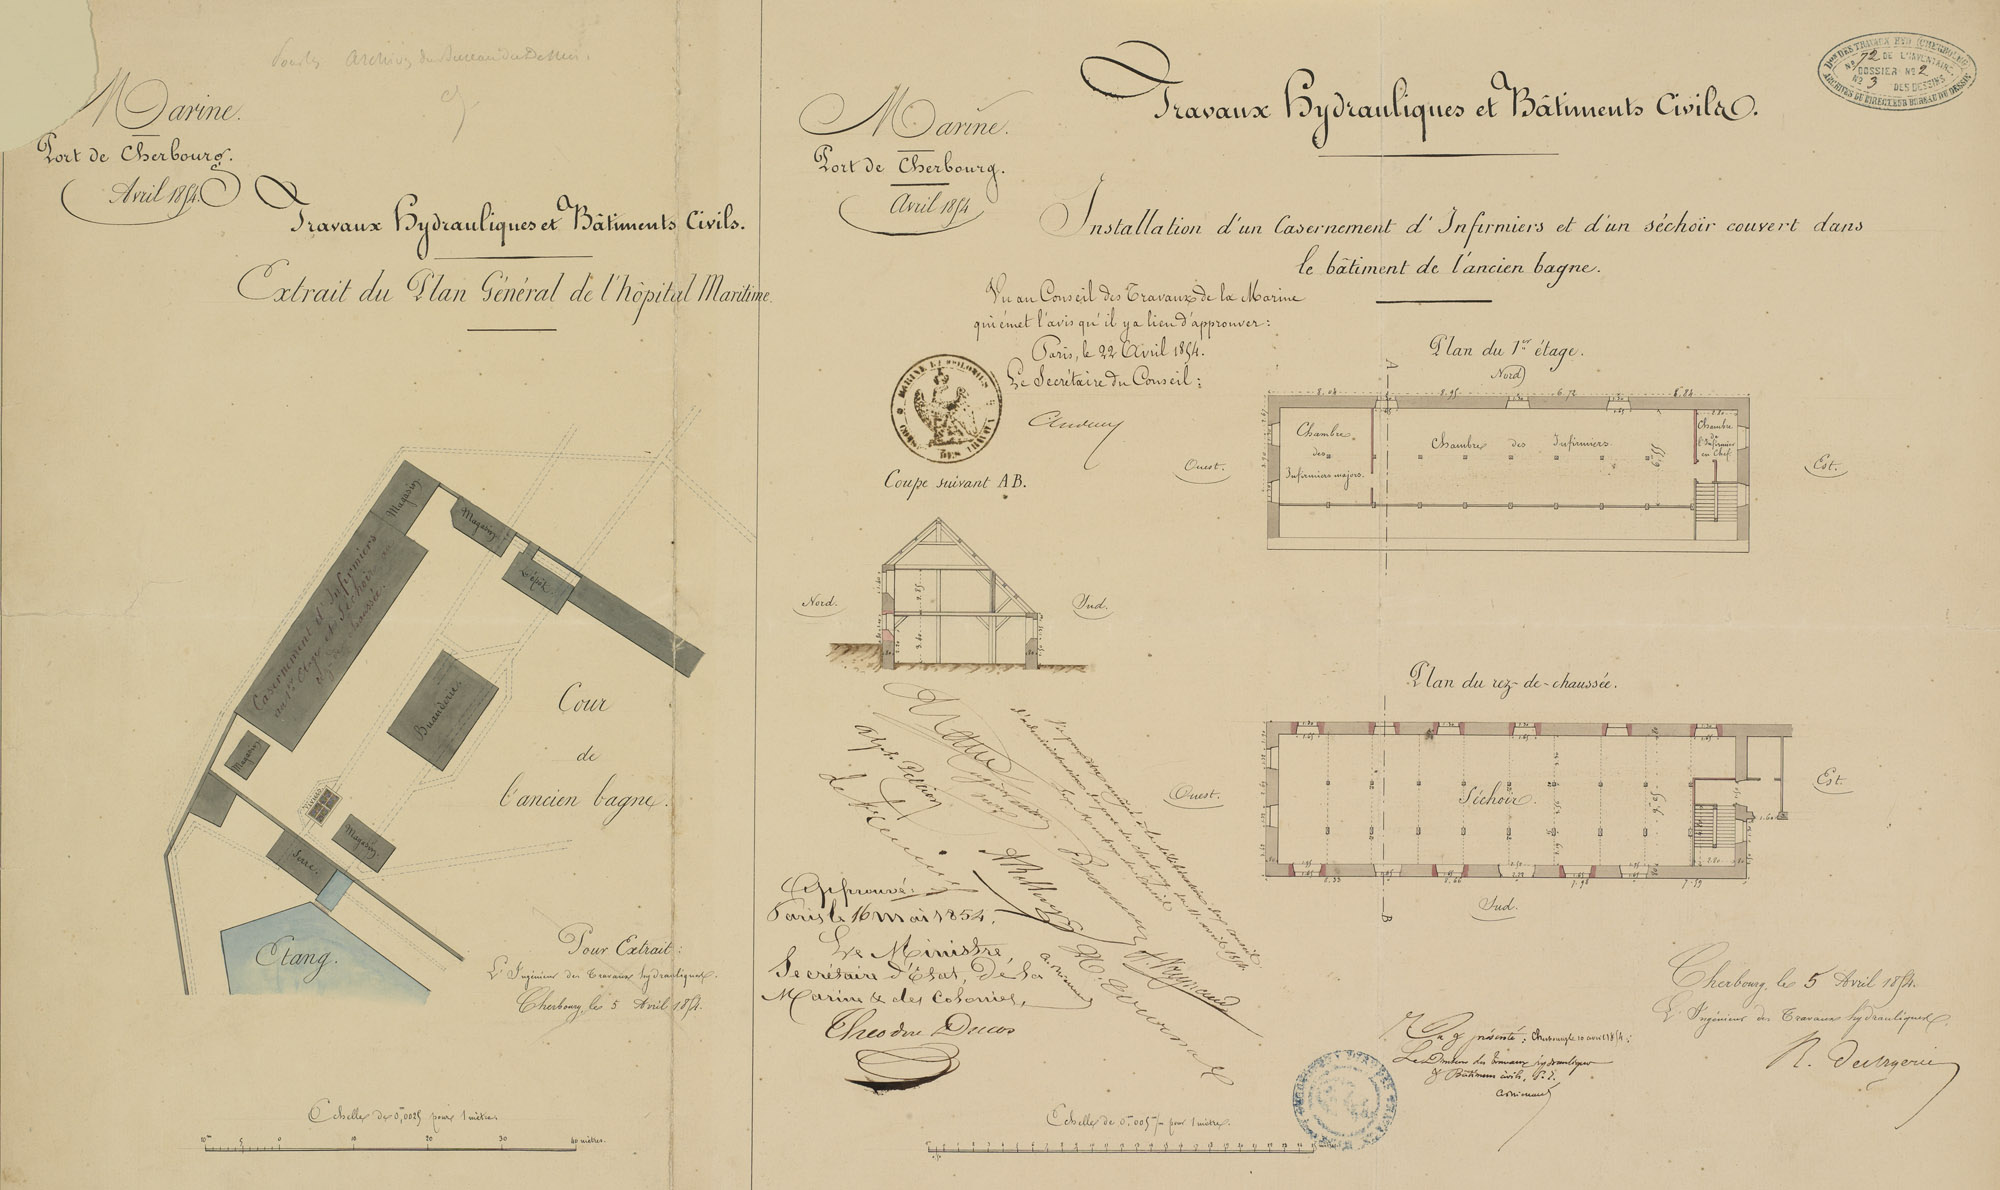 Pour les Archives du Bureau du Dessin.
Marine.
Port de Cherbourg.
Avril 1854.
Travaux Hydrauliques et Bâtiments Civils.
Extrait du Plan Général de l'hôpital Maritime.
Magasin
Magasin
Dépôt
Casernement d'Infirmiers
au 1er Etage et Séchoir au
rez de chaussée.
Buanderie.
Magasin
Magasin.
Serre.
Cour
de
l'ancien bagne.
Etang.
Pour Extrait:
L'Ingénieur des Travaux hydrauliques.
Cherbourg, le 5 Avril 1854.
Echelle de 0,m0025 pour 1 mètre.
10m 5 0 10 20 30 40 mètres.
Marine.
Port de Cherbourg.
Avril 1854
Travaux Hydrauliques et Bâtiments Civils.
Don DES TRAVAUX HYD. (CHERBOURG)
No 72 DE L'INVENTAIRE
DOSSIER No 2
No 3 DES DESSINS
ARCHIVES DU DIRECTEUR BUREAU DU DESSIN
Installation d'un Casernement d'Infirmiers et d'un séchoir couvert dans
le bâtiment de l'ancien bagne.
Vu au Conseil des Travaux de la Marine
qui émet l'avis qu'il y a lieu d'approuver:
Paris, le 22 Avril 1854.
Le Secrétaire du Conseil:
MARINE ET COLONIES
CONSEIL DES TRAVAUX
Coupe suivant AB.
Nord.
Sud.
2.85
3.40
Plan du 1er étage.
Nord
A
8.04 8.95 6.72 6.84
Ouest.
Chambre
des
Infirmiers majors.
Chambre des Infirmiers.
Chambre
de
l'Infirmier
en Chef.
Est.
Plan du rez-de-chaussée.
Ouest.
Séchoir.
Est.
B
Sud.
Approuvé:
Paris le 16 mai 1854.
Le Ministre,
Secrétaire d'Etat, de la
Marine & des Colonies,
Theodore Ducos
Cherbourg, le 5 Avril 1854.
L'Ingénieur des Travaux hydrauliques.
Vu & présenté: Cherbourg le 10 avril 1854:
Le Directeur des travaux hydrauliques
& Bâtimens civils, P.I.
Echelle de 0,m005 pour 1 mètre.